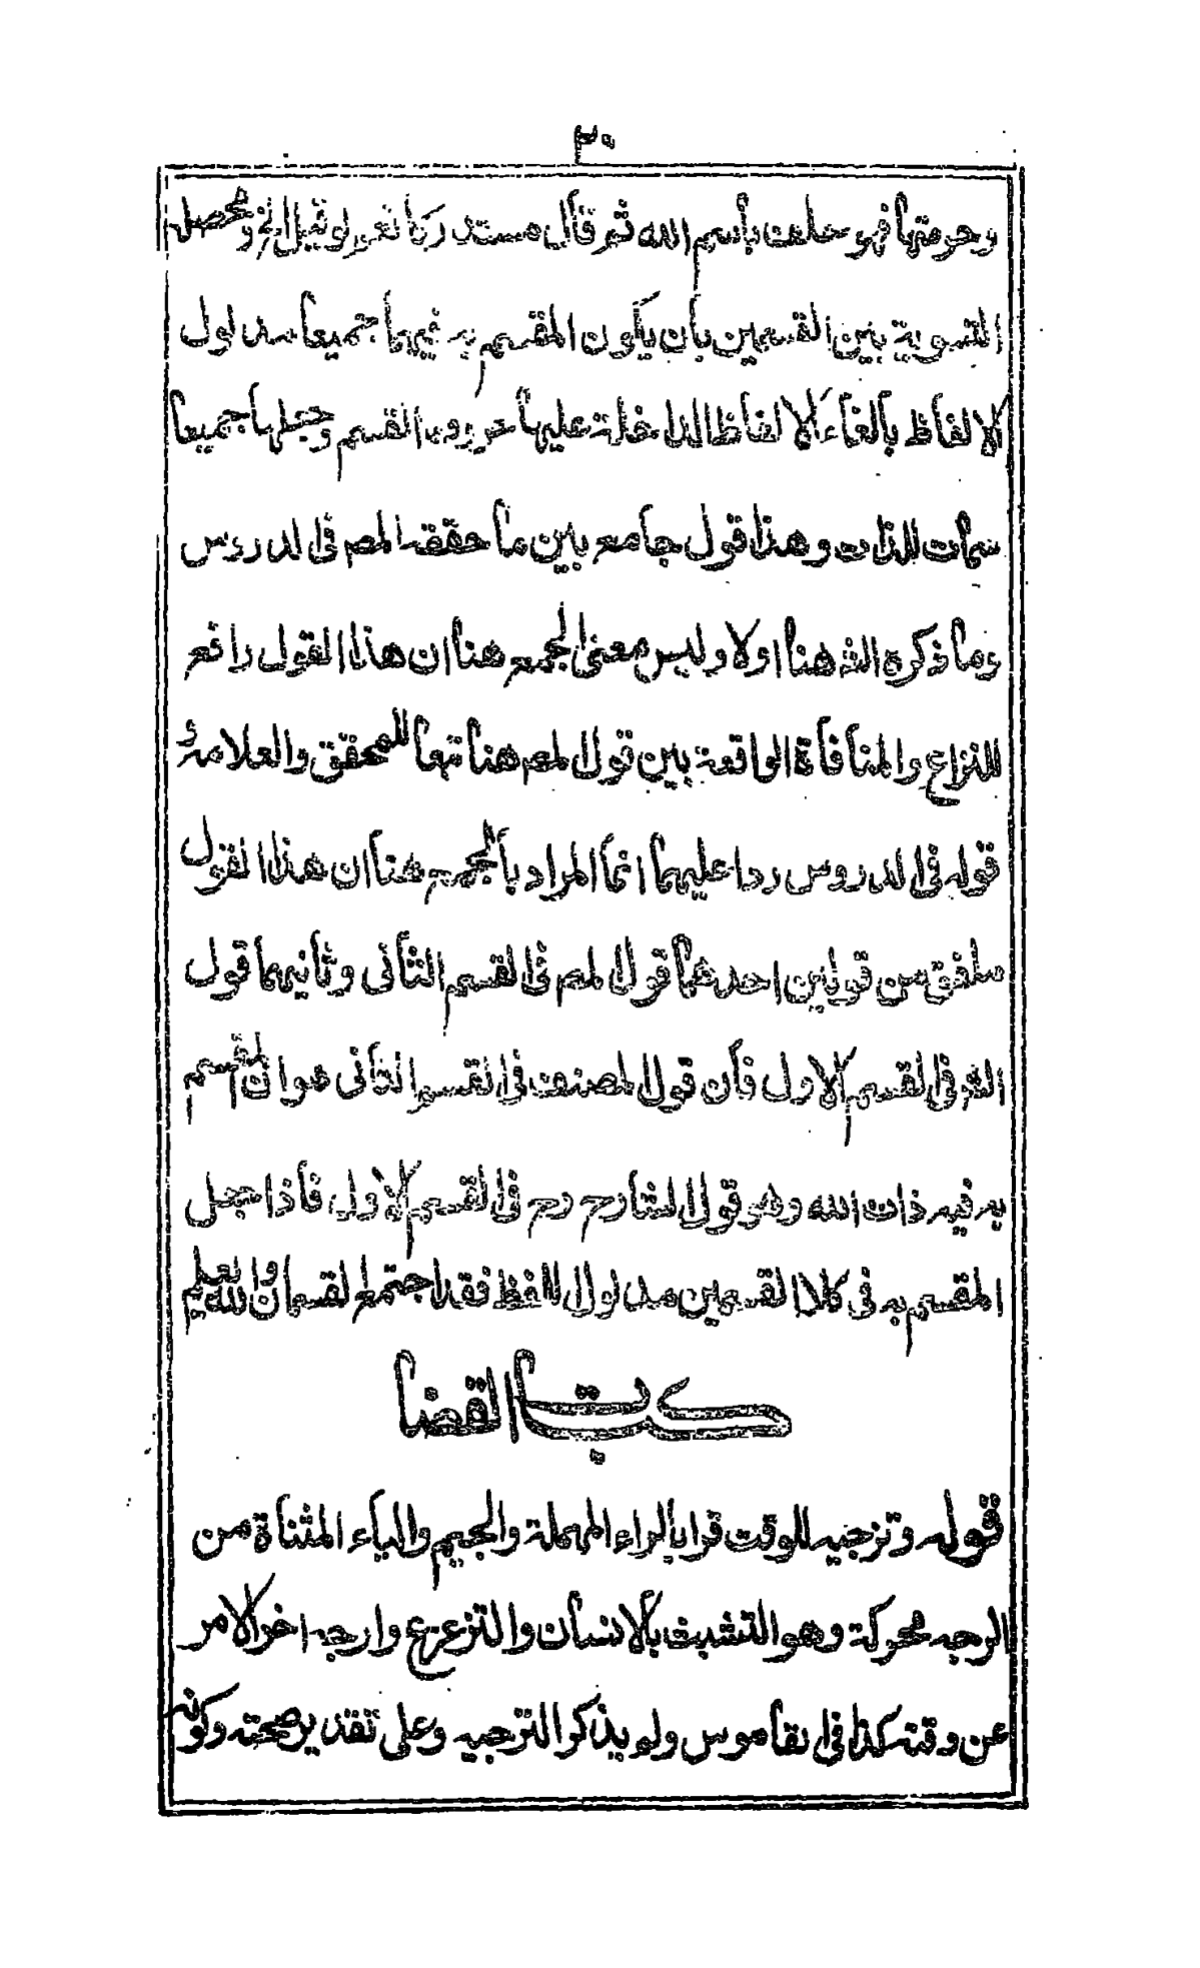 ٣٠
وحرمتها فهو حلف باسم الله ثم قال مستدركا نعم لو قيل الخ ومحصل
التسوية بين القسمين بان يكون المقسم به فيهما جميعا مدلول
الالفاظ بالغاء الالفاظ الداخلة عليها حروف القسم وجعلها جميعا
سمات للذات وهذا قول جامع بين ما حققه المص فى الدروس
وما ذكره الش هنا اولا وليس معنى الجمع هنا ان هذا القول رافع
للنزاع والمنافاة الواقعة بين قول المص هنا تبعا للمحقق والعلامة و
قوله فى الدروس ردا عليهما انما المراد بالجمع هنا ان هذا القول
ملفق من قولين احدهما قول المص فى القسم الثانى وثانيهما قول
الش فى القسم الاول فان قول المصنف فى القسم الثانى هو ان المقسم
به فيه ذات الله وهو قول الشارح رح فى القسم الاول فاذا جعل
المقسم به فى كلا القسمين مدلول اللفظ فقد اجتمع القسمان والله يعلم
كتاب القضا
قوله وترجيه للوقت قرا بالراء المهملة والجيم والياء المثناة من
الرجه محركة وهو التشبث بالانسان والتزعزع وارجه اخر الامر
عن وقته كذا فى القاموس ولم يذكر الترجيه وعلى تقدير صحته وكونه